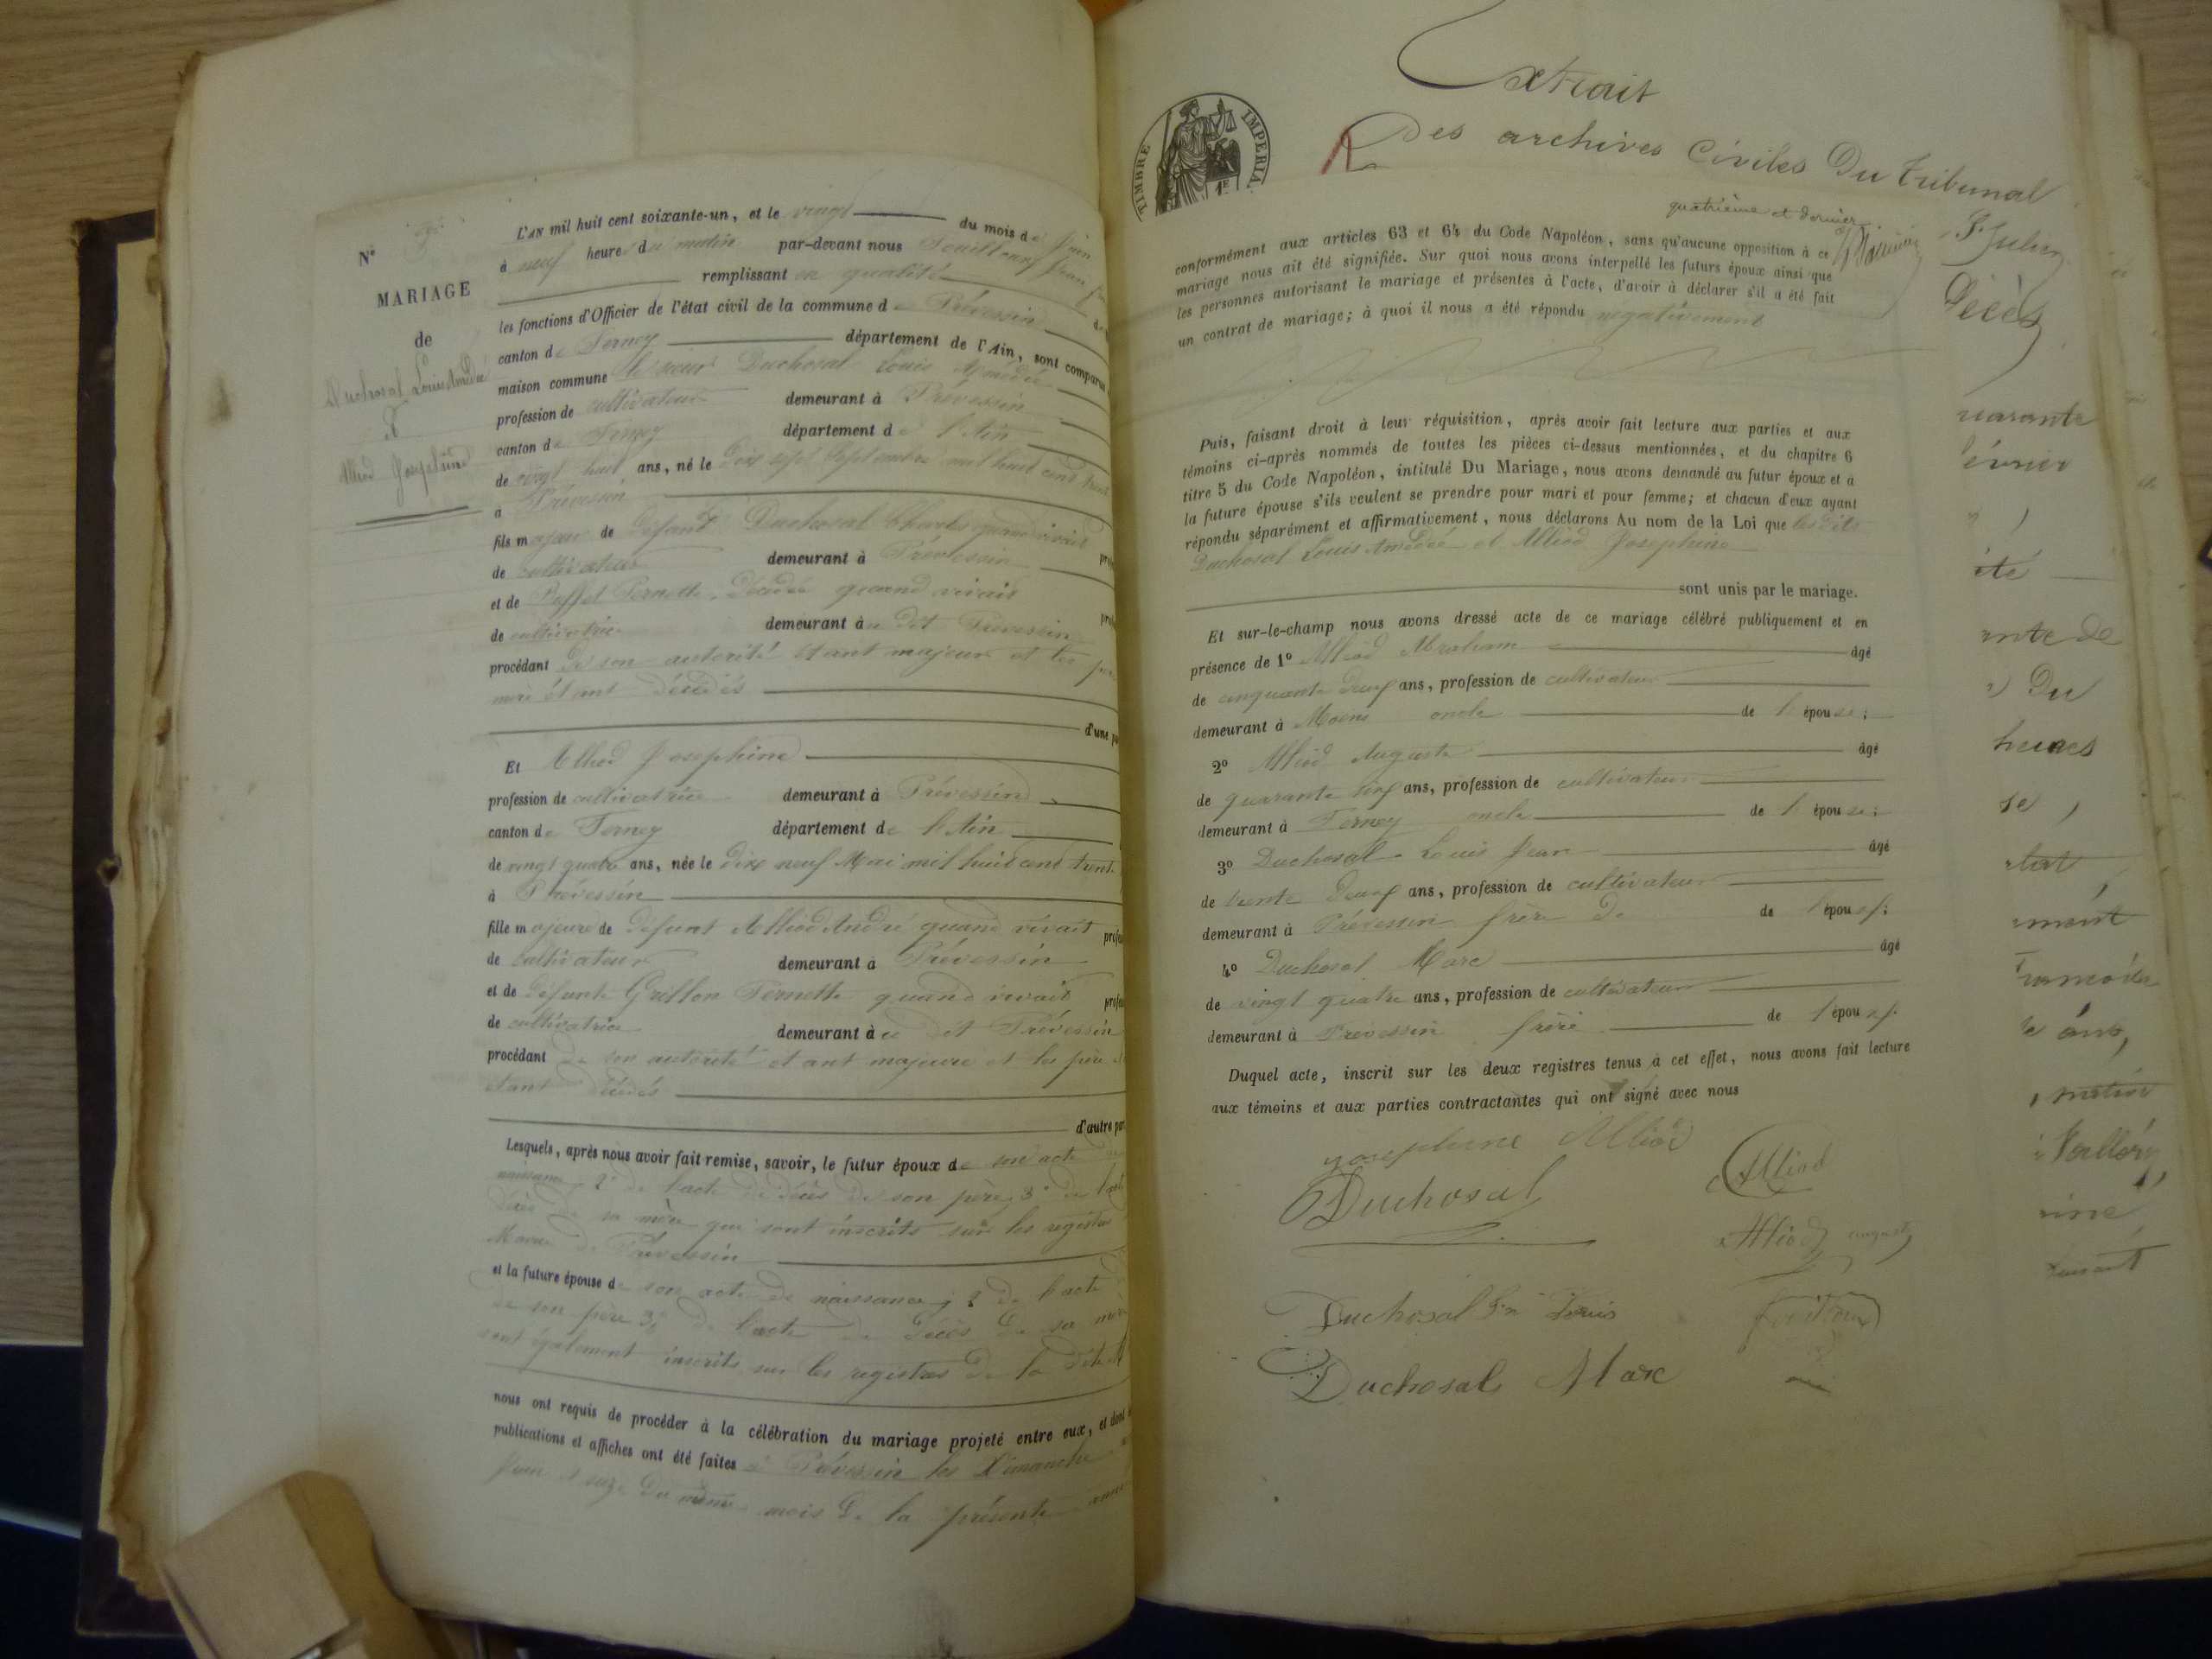 N°
MARIAGE
de
Duchosal Louis Amédée
&
Alliod Josephine
L'AN mil huit cent soixante-un, et le vingt du mois de Juin
à neuf heure du matin par-devant nous
remplissant en qualité
les fonctions d'Officier de l'état civil de la commune de Prévessin
canton de Ferney département de l'Ain, sont comparus
maison commune le sieur Duchosal Louis Amédée
profession de cultivateur demeurant à Prévessin
canton de Ferney département de l'Ain
de vingt huit ans, né le dix sept Septembre mil huit cent trent
à Prévessin
fils majeur de défunt Duchosal Charles quand vivait
de cultivateur demeurant à Prévessin
et de Buffet Pernette décédée quand vivait
de cultivatrice demeurant à u dit Prévessin
procédant de son autorité étant majeur et les père
mère étant décédés
d'une pa
Et Alliod Josephine
profession de cultivatrice demeurant à Prévessin
canton de Ferney département de l'Ain
de vingt quatre ans, née le dix neuf Mai mil huit cent trente
à Prévessin
fille majeure de défunt Alliod André quand vivait
de cultivateur demeurant à Prévessin
et de défunte Grillon Pernette quand vivait
de cultivatrice demeurant à u dit Prévessin
procédant de son autorité étant majeure et les père
étant décédés
d'autre par
Lesquels, après nous avoir fait remise, savoir, le futur époux de son acte
naissance, 2° de l'acte de décès de son père, 3° de l'acte
décès de sa mère qui sont inscrits sur les registres
Prévessin
et la future épouse de son acte de naissance, 2° de l'acte
de son père 3° de l'acte de décès de sa mère
sont également inscrits sur les registres de la dite
nous ont requis de procéder à la célébration du mariage projeté entre eux, et dont
publications et affiches ont été faites à Prévessin les Dimanche
Juin et seize du même mois de la présente année
Extrait
Des archives Civiles Du Tribunal
TIMBRE IMPERIAL
quatrième et dernier
conformément aux articles 63 et 64 du Code Napoléon, sans qu'aucune opposition à ce
mariage nous ait été signifiée. Sur quoi nous avons interpellé les futurs époux ainsi que
les personnes autorisant le mariage et présentes à l'acte, d'avoir à déclarer s'il a été fait
un contrat de mariage; à quoi il nous a été répondu négativement
Puis, faisant droit à leur réquisition, après avoir fait lecture aux parties et aux
témoins ci-après nommés de toutes les pièces ci-dessus mentionnées, et du chapitre 6
titre 5 du Code Napoléon, intitulé Du Mariage, nous avons demandé au futur époux et à
la future épouse s'ils veulent se prendre pour mari et pour femme; et chacun d'eux ayant
répondu séparément et affirmativement, nous déclarons Au nom de la Loi que les dits
Duchosal Louis Amédée et Alliod Josephine
sont unis par le mariage.
Et sur-le-champ nous avons dressé acte de ce mariage célébré publiquement et en
présence de 1° Alliod Abraham âgé
de cinquante neuf ans, profession de cultivateur
demeurant à Moens oncle de l'épouse;
2° Alliod Auguste âgé
de quarante neuf ans, profession de cultivateur
demeurant à Ferney oncle de l'épouse;
3° Duchosal Louis Jean âgé
de trente neuf ans, profession de cultivateur
demeurant à Prévessin frère de de l'époux;
4° Duchosal Marc âgé
de vingt quatre ans, profession de cultivateur
demeurant à Prevessin frère de l'époux.
Duquel acte, inscrit sur les deux registres tenus à cet effet, nous avons fait lecture
aux témoins et aux parties contractantes qui ont signé avec nous
Josephine Alliod
Duchosal
Alliod
Alliod auguste
Duchosal Jn Louis
Duchosal Marc
Décès
uarante
évrier
ité
nte de
Du
heures
se,
ment
e ans,